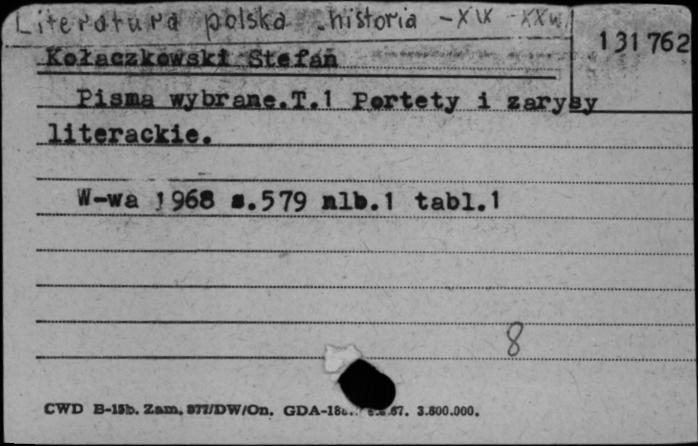 Literatura polska - historia - XIX - XX w.
131762
Kołaczkowski Stefan
Pisma wybrane.T.1 Portety i zarysy
literackie.
W-wa 1968 s.579 nlb.1 tabl.1
8
CWD B-15b. Zam. 977/DW/On. GDA-18 67. 3.800.000.